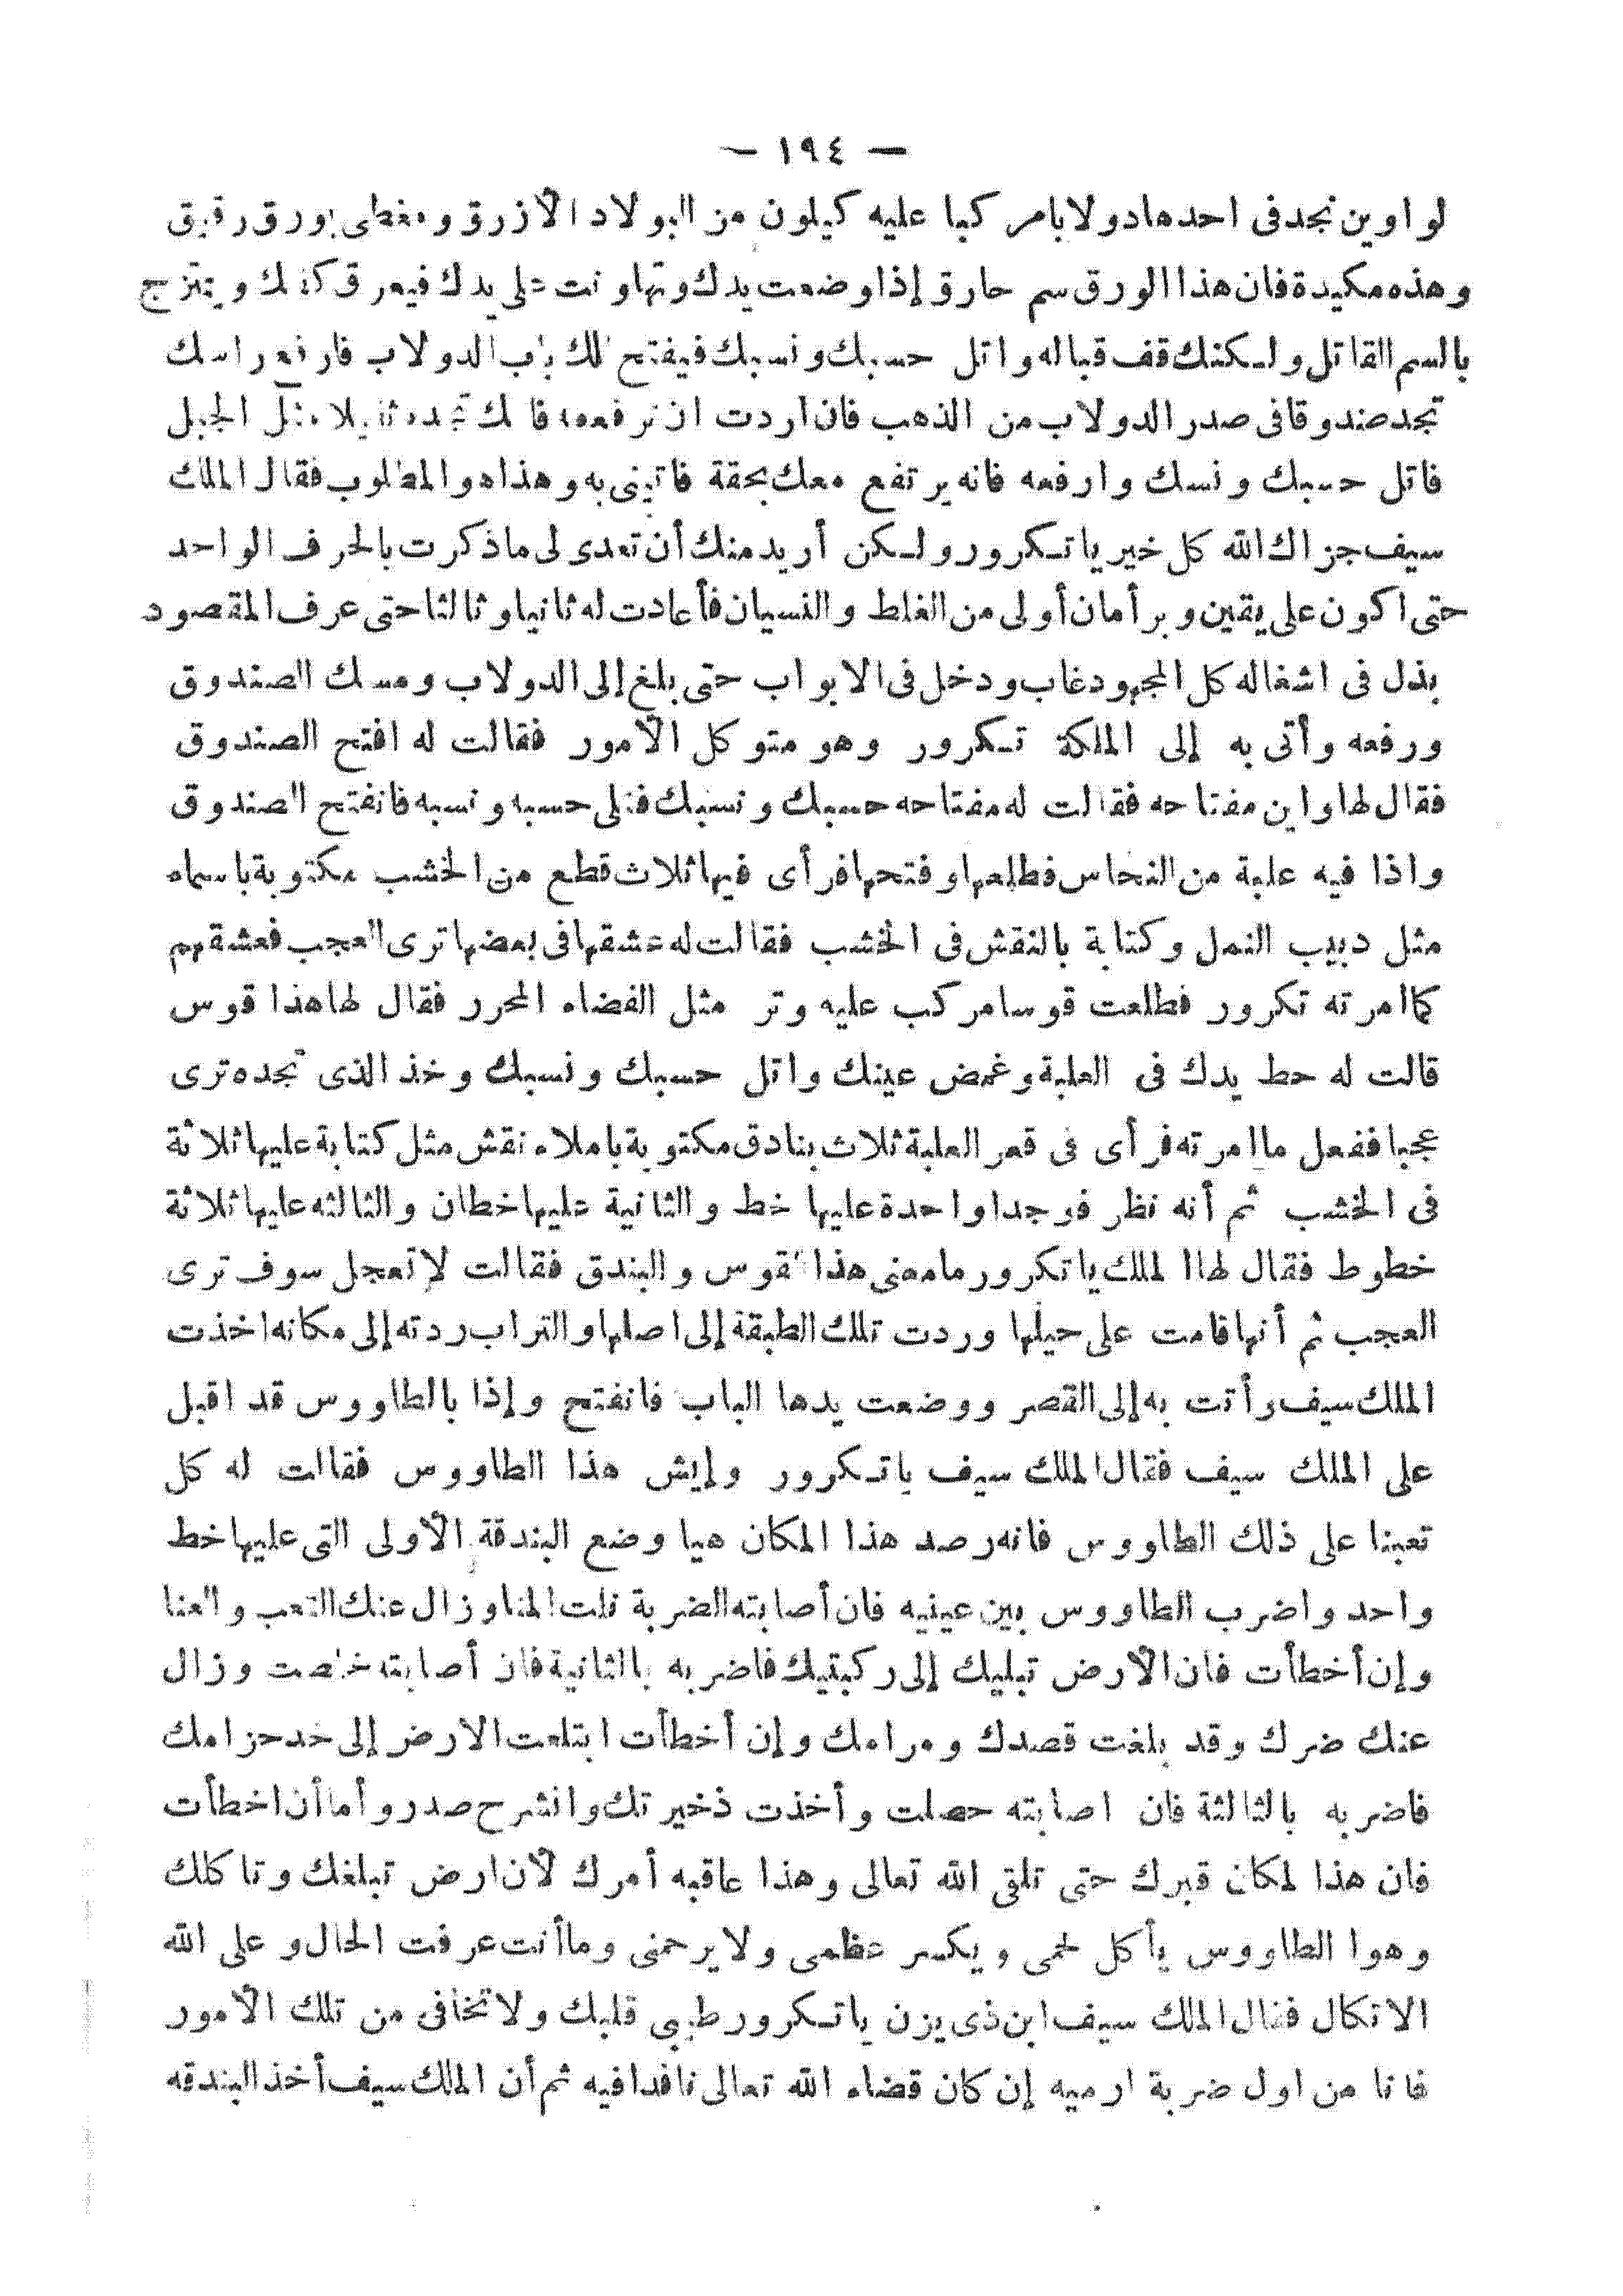 — ١٩٤ —
لو اوين نجد فى احدها دولا بامر كبا عليه كيلون من البولاد الأزرق ومغطى بورق رقيق
وهذه مكيدة فان هذا الورق سم حارق إذا وضعت يدك وتهاونت على يدك فيعرق كفك ويمتزج
بالسم القاتل ولكنك قف قباله واتل حسبك ونسبك فيفتح لك باب الدولاب فارفع راسك
تجد صندوقا فى صدر الدولاب من الذهب فان أردت ان ترفعه فانك تجده ثقيلا مثل الجبل
فاتل حسبك ونسك وارفعه فانه يرتفع معك بحقة فاتينى به وهذا هو المطلوب فقال الملك
سيف جزاك الله كل خير يا تكرور ولكن أريد منك أن تعدى لى ما ذكرت بالحرف الواحد
حتى اكون على يقين وبر أمان أولى من الغلط والنسيان فأعادت له ثانيا وثالثا حتى عرف المقصود
بذل فى اشغاله كل المجهود غاب ودخل فى الابواب حتى بلغ إلى الدولاب ومسك الصندوق
ورفعه وأتى به إلى الملكة تكرور وهو متوكل الأمور فقالت له افتح الصندوق
فقال لها واين مفتاحه فقالت له مفتاحه حسبك ونسبك فتلى حسبه ونسبه فانفتح الصندوق
واذا فيه علبة من النحاس فطلعها وفتحها فرأى فيها ثلاث قطع من الخشب مكتوبة باسماء
مثل دبيب النمل وكتابة بالنقش فى الخشب فقالت له عشقها فى بعضها ترى العجب فعشقهم
كما امرته تكرور فطلعت قوسا مركب عليه وتر مثل الفضاء المحرر فقال لها هذا قوس
قالت له حط يدك فى العلبة وغمض عينك واتل حسبك ونسبك وخذ الذى تجده ترى
عجبا ففعل ما امرته فرأى فى قعر العلبة ثلاث بنادق مكتوبة باملاء نقش مثل كتابة عليها ثلاثة
فى الخشب ثم أنه نظر فوجدا واحدة عليها خط والثانية عليها خطان والثالثه عليها ثلاثة
خطوط فقال لها الملك يا تكرور ما معنى هذا القوس والبندق فقالت لا تعجل سوف ترى
العجب ثم أنها قامت على حيلها وردت تلك الطبقة إلى اصلها والتراب ردته إلى مكانه اخذت
الملك سيف وأتت به إلى القصر ووضعت يدها الباب فانفتح وإذا بالطاووس قد اقبل
على الملك سيف فقال الملك سيف يا تكرور وإيش هذا الطاووس فقالت له كل
تعبنا على ذلك الطاووس فانه رصد هذا المكان هيا وضع البندقة الأولى التى عليها خط
واحد واضرب الطاووس بين عينيه فان أصابته الضربة نلت المنا وزال عنك التعب والعنا
وإن أخطأت فان الأرض تبليك إلى ركبتيك فاضربه بالثانية فان أصابته خلصت وزال
عنك ضرك وقد بلغت قصدك ومرامك وإن أخطأت ابتلعت الارض إلى خد حزامك
فاضربه بالثالثة فان اصابته حصلت وأخذت ذخيرتك وانشرح صدرو أما أن اخطأت
فان هذا لمكان قبرك حتى تلقى الله تعالى وهذا عاقبه أمرك لأن ارض تبلغك وتا كلك
وهوا الطاووس يأكل لحمى ويكسر عظمى ولا يرحمنى وما أنت عرفت الحال وعلى الله
الاتكال فقال الملك سيف ابن ذى يزن يا تكرور طيبى قلبك ولا تخافى من تلك الأمور
فانا من اول ضربة ارميه إن كان قضاء الله تعالى نافدا فيه ثم أن الملك سيف أخذ البندقه